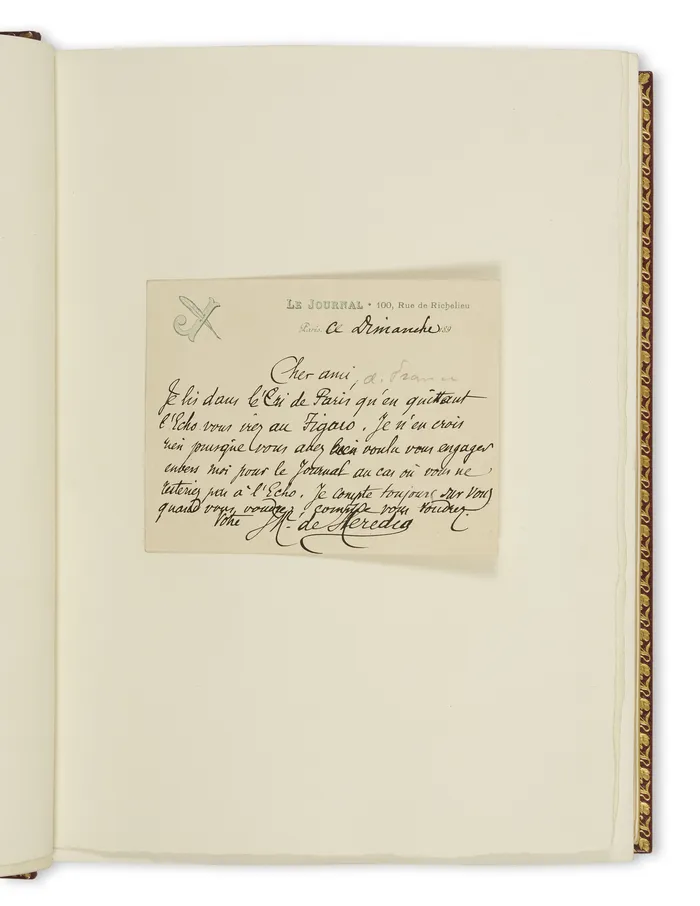 LE JOURNAL • 100, Rue de Richelieu
Paris, ce Dimanche 189
Cher ami, a. France
Je lis dans le Cri de Paris qu'en quittant
l'Echo vous irez au Figaro. Je n'en crois
rien puisque vous avez bien voulu vous engager
envers moi pour le Journal au cas où vous ne
resteriez pas à l'Echo. Je compte toujours sur vous
quand vous voudrez, comme vous voudrez.
Votre JM. de Heredia